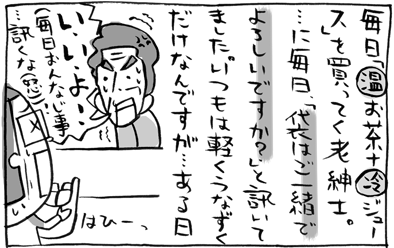 毎日「温お茶＋冷ジュー
ス」を買ってく老紳士。
…に毎日、「代衣はご一緒で
よろしいですか？」と訊いて
ました。いつもは軽くうなずく
だけなんですが…ある日
いいよ…
（毎日おんなじ事
…訊くな（怒））
はひーっ